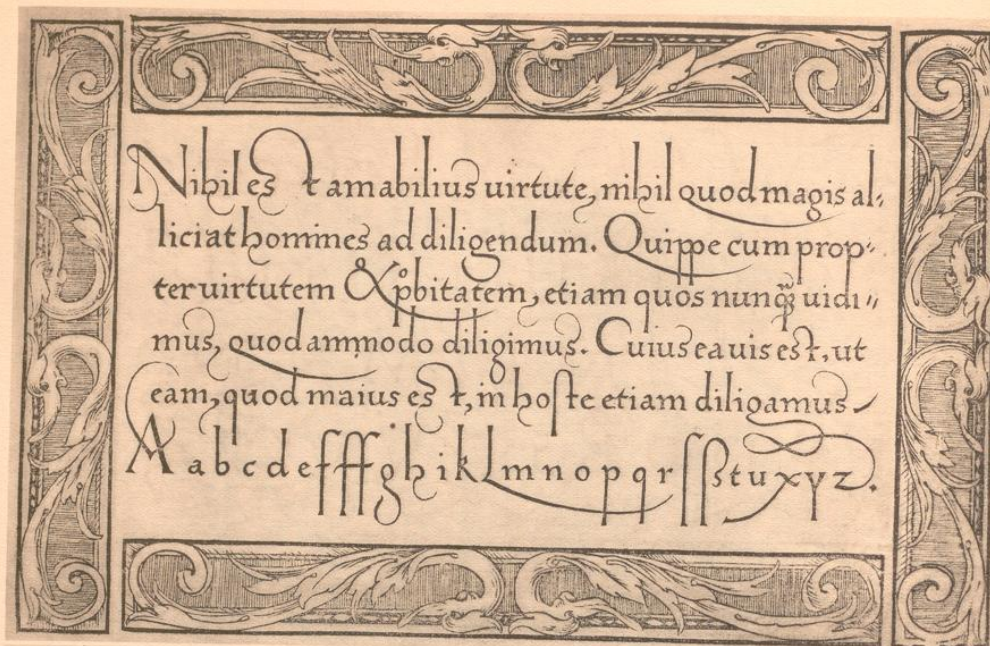 Nihil est amabilius uirtute, nihil quod magis al-
liciat homines ad diligendum. Quippe cum prop-
ter uirtutem & ꝓbitatem, etiam quos nunꝗ̃ uidi-
mus, quodammodo diligimus. Cuius ea uis est, ut
eam, quod maius est, in hoſte etiam diligamus
A a b c d e f ff g h i k l m n o p q r ſ ſſ ß t u x y z.